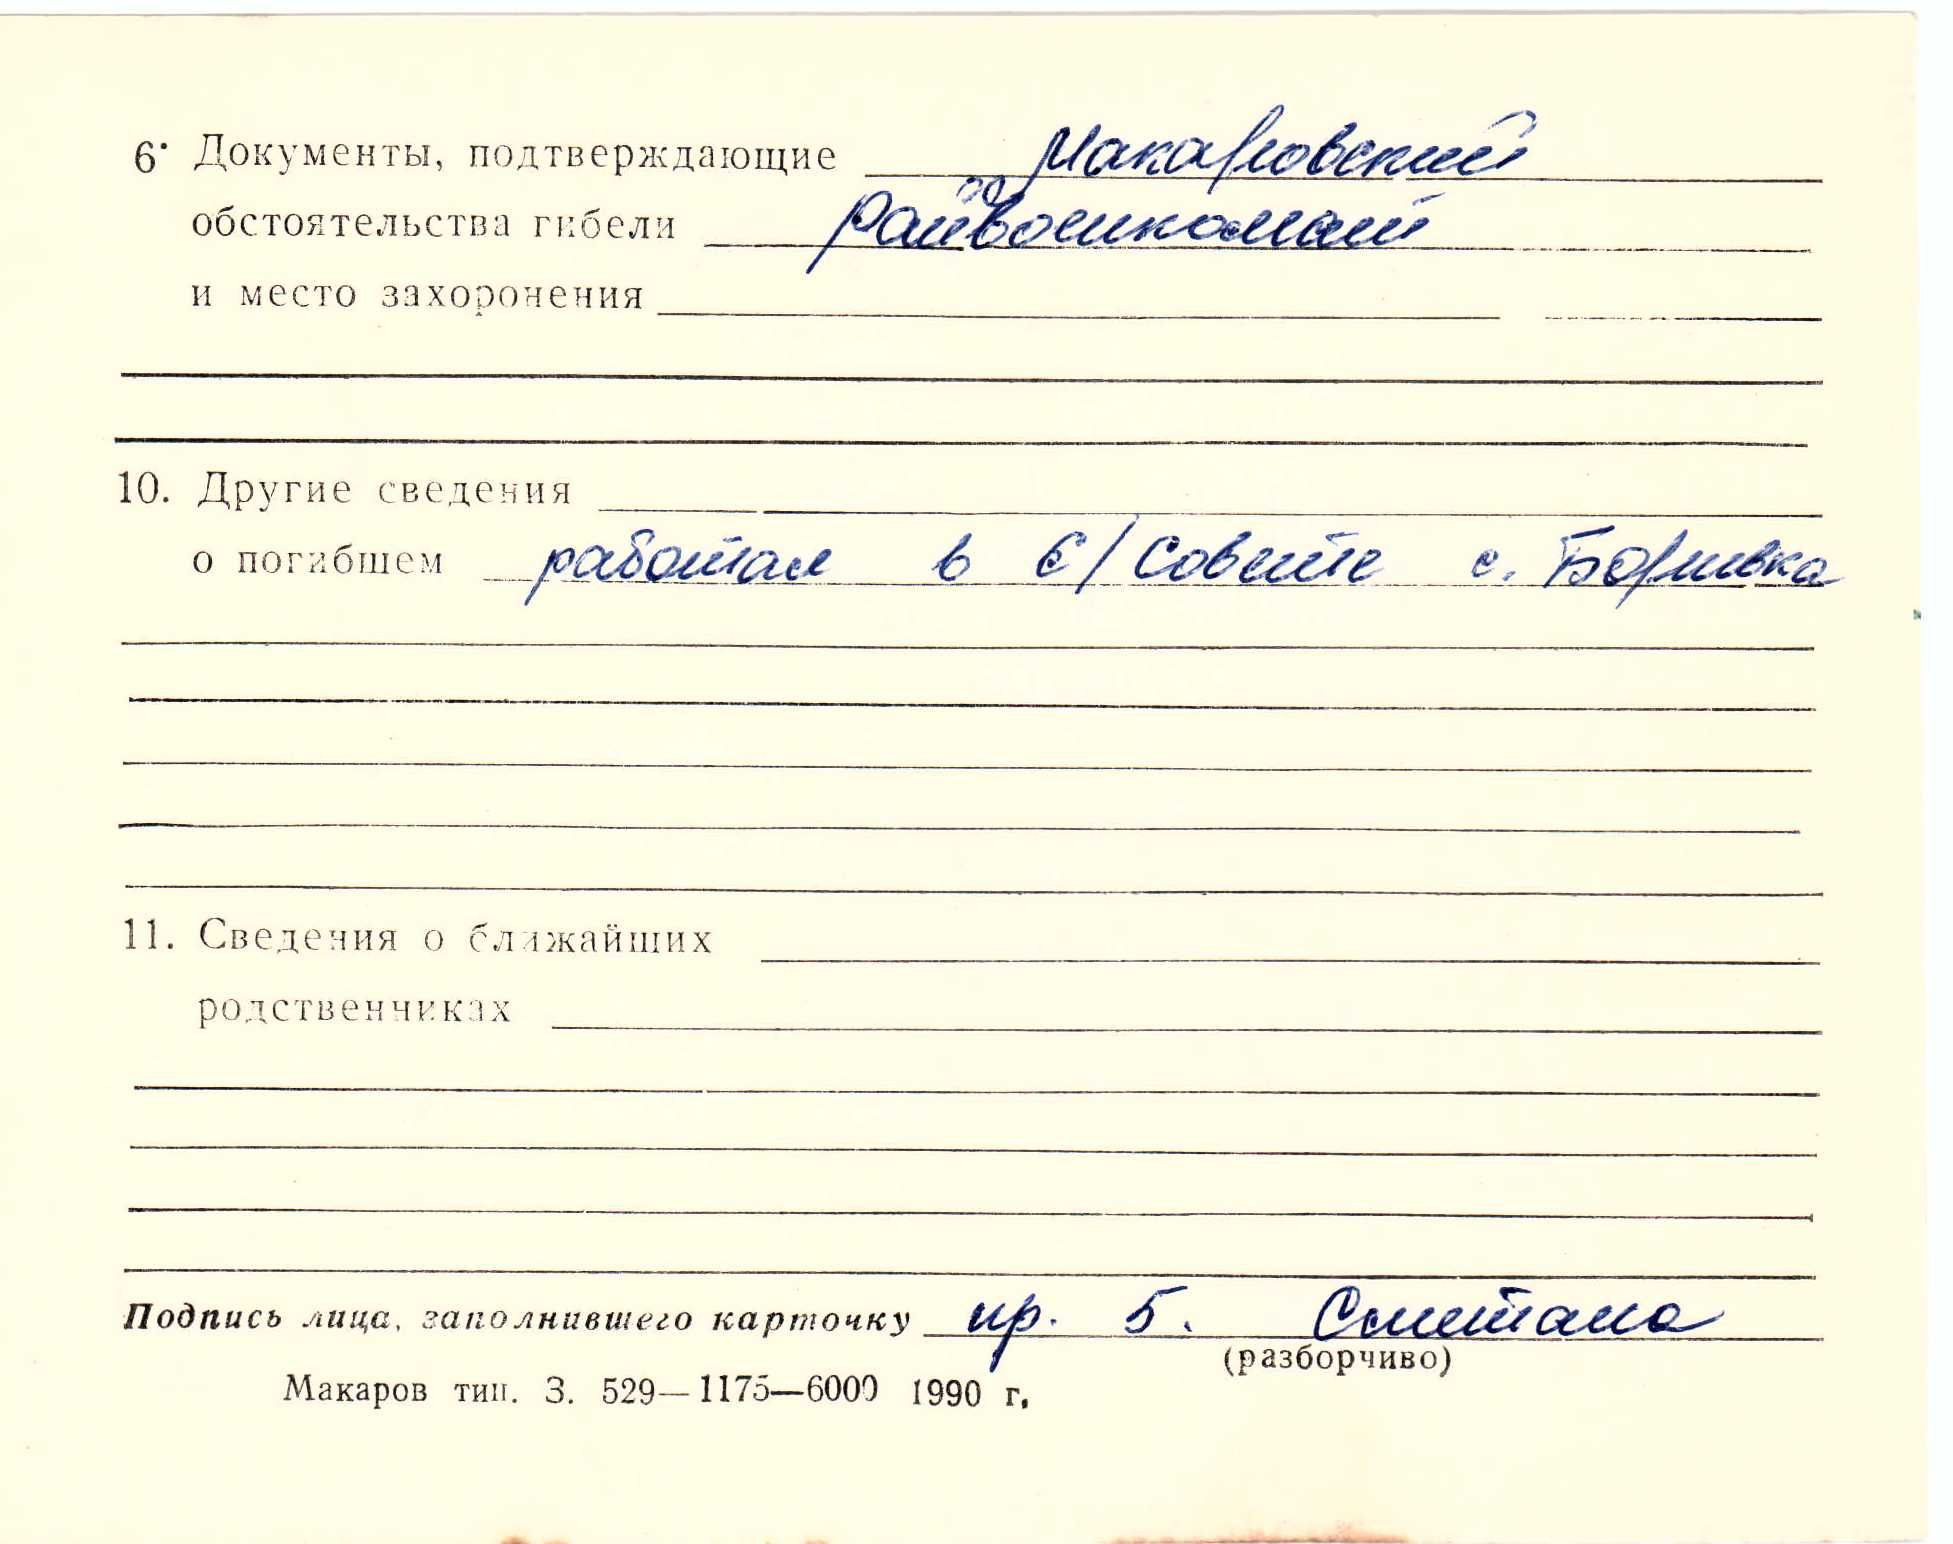 6. Документы, подтверждающие Макаровский
обстоятельства гибели райвоенкомат
и место захоронения
10. Другие сведения
о погибшем работал в с/совете с. Боривка
11. Сведения о ближайших
родственниках
Подпись лица, заполнившего карточку пр. 5. Сметана
(разборчиво)
Макаров тип. З. 529—1175—6000 1990 г.